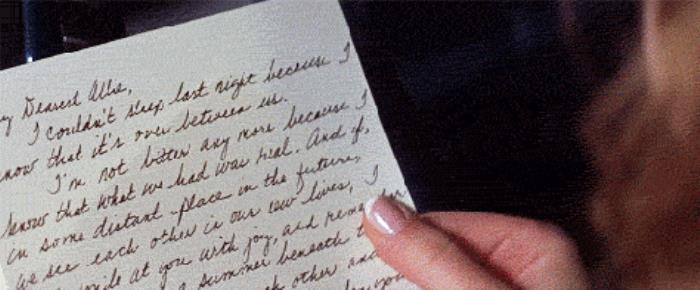 y Dearest Allie,
I couldn't sleep last night because I
know that it's over between us.
I'm not bitter any more because I
know that what we had was real. And if,
in some distant place in the future,
we see each other in our new lives, I
smile at you with joy, and remember
a summer beneath t
each other and